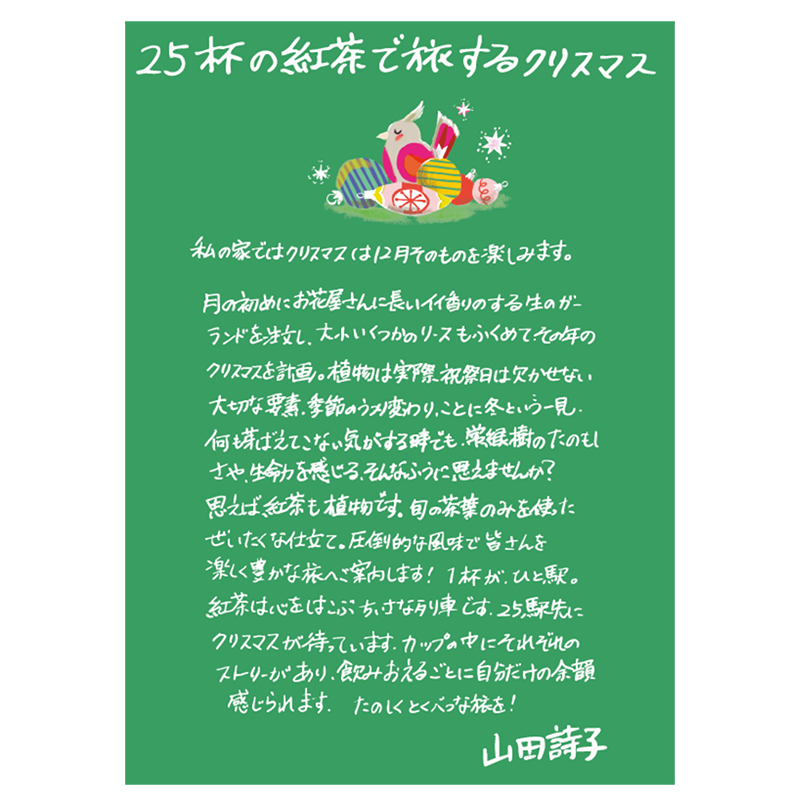 25杯の紅茶で旅するクリスマス
私の家ではクリスマスは12月そのものを楽しみます。
月の初めにお花屋さんに長いイイ香りのする生のガー
ランドを注文し、大小いくつかのリースもふくめて、その年の
クリスマスを計画。植物は実際、祝祭日は欠かせない
大切な要素、季節のうつり変わり、ことに冬という一見、
何も芽ばえてこない気がする時でも、常緑樹のたのもし
さや、生命力を感じる、そんなふうに思えませんか?
思えば、紅茶も植物です。旬の茶葉のみを使った
ぜいたくな仕立て。圧倒的な風味で皆さんを
楽しく豊かな旅へご案内します! 1杯が、ひと駅。
紅茶は心をはこぶちいさな列車です。25駅先に
クリスマスが待っています。カップの中にそれぞれの
ストーリーがあり、飲みおえるごとに自分だけの余韻
感じられます。 たのしくとくべつな旅を!
山田詩子